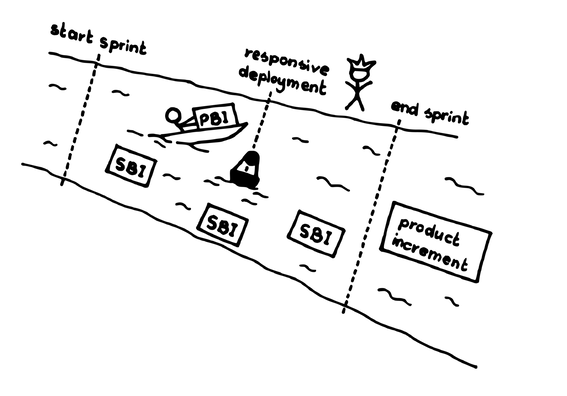 start sprint
responsive
deployment
end sprint
PBI
SBI
SBI
SBI
product
increment